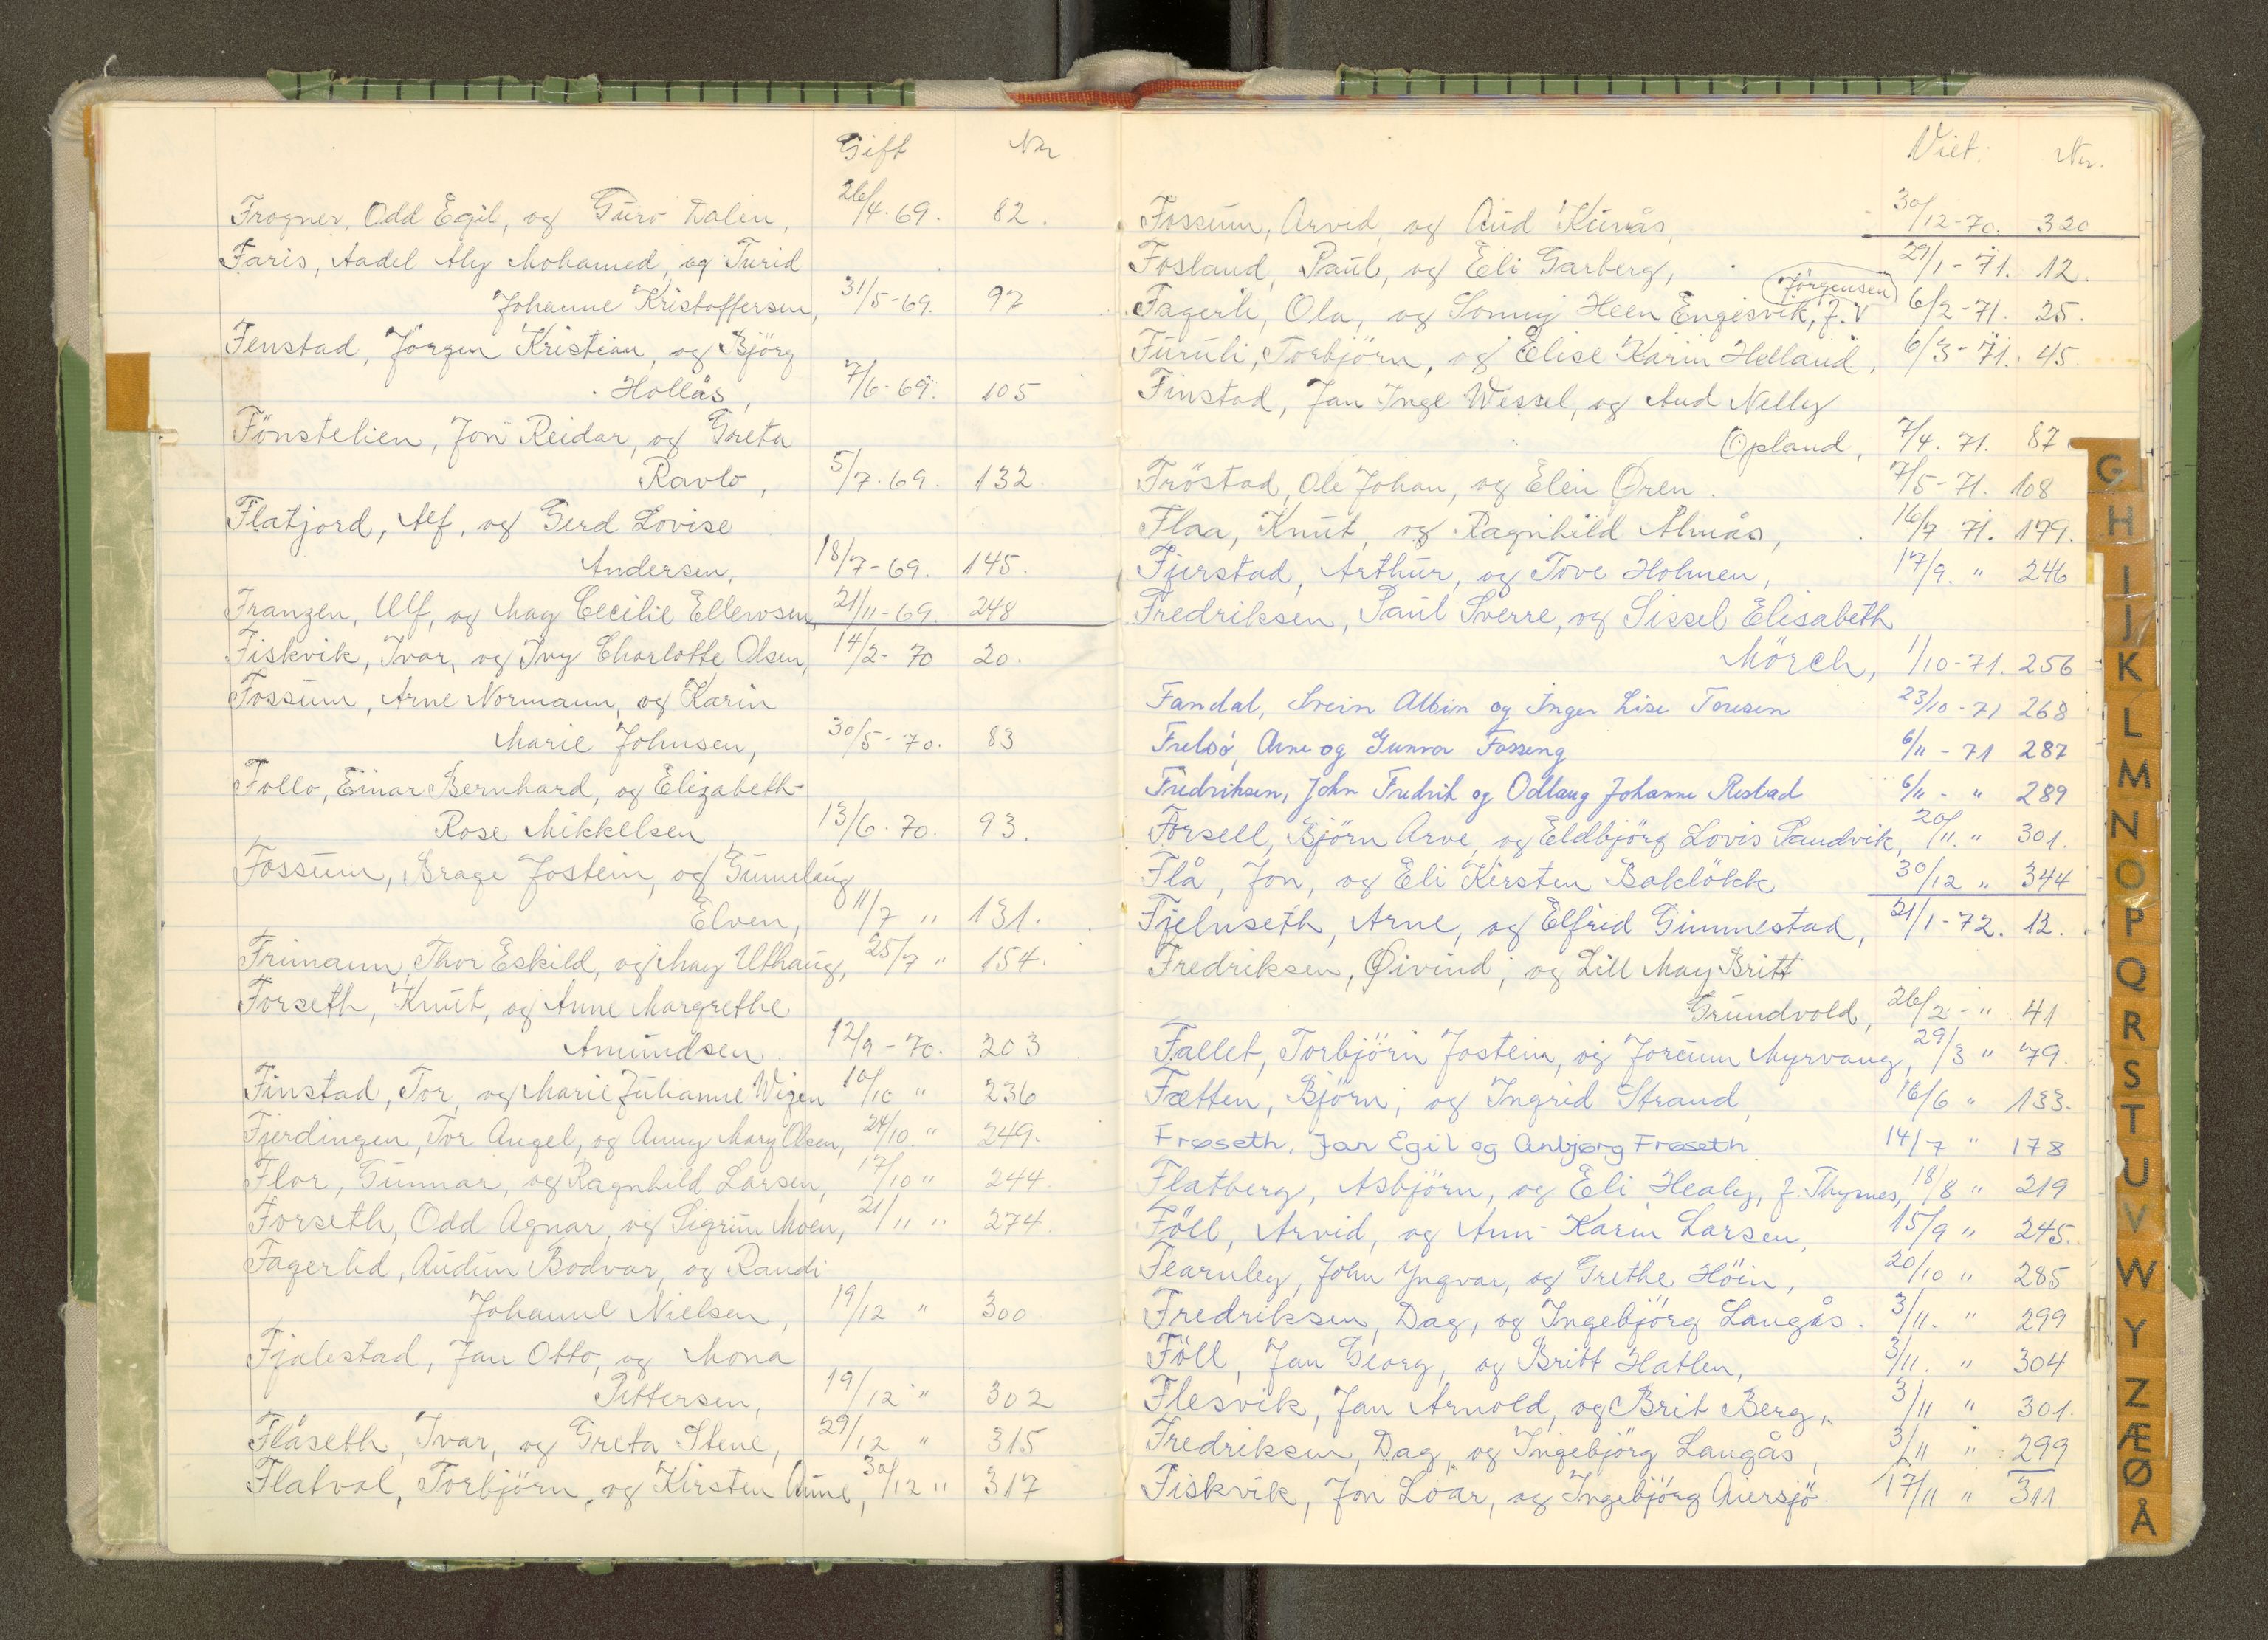 Gift Nr
Frogner, Odd Egil, og Guro Dalen, 26/4.69. 82.
Faris, Aadel Aly Mohamed, og Turid
Johanne Kristoffersen, 31/5-69. 97
Fenstad, Jörgen Kristian, og Björg
Hollås, 7/6-69. 105
Fönstelien, Jon Reidar, og Greta
Ravlo, 5/7.69. 132.
Flatjord, Alf, og Gerd Lovise
Andersen, 18/7-69. 145.
Franzen, Ulf, og May Cecilie Ellewsen, 21/11-69. 248
Fiskvik, Ivar, og Ivy Charlotte Olsen, 14/2-70 20.
Fossum, Arne Normann, og Karin
Marie Johnsen, 30/5-70. 83
Follo, Einar Bernhard, og Elizabeth-
Rose Mikkelsen, 13/6.70. 93.
Fossum, Brage Jostein, og Gunnlaug
Elven, 11/7 " 131.
Frimann, Thor Eskild, og May Uthaug, 25/7 " 154.
Forseth, Knut, og Anne Margrethe
Amundsen. 12/9-70. 203
Finstad, Tor, og Marie Julianne Wigen 10/10 " 236
Fjerdingen, Tor Angel, og Anny Mary Olsen, 24/10. " 249.
Flor, Gunnar, og Ragnhild Larsen, 17/10 " 244.
Forseth, Odd Agnar, og Sigrun Moen, 21/11 " 274.
Fagerlid, Audun Bodvar, og Randi
Johanne Nielsen, 19/12 " 300
Fjalestad, Jan Otto, og Mona
Pettersen, 19/12 " 302
Flåseth, Ivar, og Greta Stene, 29/12 " 315
Flatval, Torbjörn, og Kirsten Aune, 30/12 " 317
Viet: Nr.
Fossum, Arvid, og Aud Kuvås, 30/12-70. 320
Fosland, Paul, og Eli Garberg, 29/1-71. 12.
Jörgensen
Fagerli, Ola, og Sonny Heen Engesvik, f. v 6/2-71. 25.
Furuli, Torbjörn, og Elise Karin Helland, 6/3-71. 45.
Finstad, Jan Inge Wessel, og Aud Nelly
Opland, 7/4.71. 87
Fröstad, Ole Johan, og Elin Øren. 7/5-71. 108
Flaa, Knut, og Ragnhild Almås, 16/7 71. 179.
Fjerstad, Arthur, og Tove Holmen, 17/9. " 246
Fredriksen, Paul Sverre, og Sissel Elisabeth
Mörch, 1/10-71. 256
Fandal, Svein Albin og Inger Lise Toresen 23/10-71 268
Frelsø, Arne og Gunvor Fosseng 6/11-71 287
Fredriksen, John Fredrik og Odlaug Johanne Restad 6/11- " 289
Forsell, Björn Arve, og Eldbjörg Lovis Sandvik, 20/11. " 301.
Flå, Jon, og Eli Kirsten Baklökk 30/12 " 344
Fjelnseth, Arne, og Elfrid Gimmestad, 21/1-72. 12.
Fredriksen, Øivind, og Lill May Britt
Grundvold, 26/2- " 41
Fallet, Torbjörn Jostein, og Jorunn Myrvang, 29/3 " 79.
Fætten, Björn, og Ingrid Strand, 16/6 " 133.
Frøseth, Jar Egil og Anbjørg Frøseth 14/7 " 178
Flatberg, Asbjörn, og Eli Healy, f. Thymes, 18/8 " 219
Föll, Arvid, og Ann-Karin Larsen, 15/9 " 245.
Fearnley, John Yngvar, og Grethe Höin, 20/10 " 285
Fredriksen, Dag, og Ingebjörg Langås. 3/11. " 299
Föll, Jan Georg, og Britt Hatlen, 3/11. " 304
Flesvik, Jan Arnold, og Brit Berg, 3/11 " 301.
Fredriksen, Dag, og Ingebjörg Langås, 3/11 " 299
Fiskvik, Jon Loar, og Ingebjörg Aversjö. 17/11 " 311
G
H
I
J
K
L
M
N
O
P
Q
R
S
T
U
V
W
Y
Z
Æ
Ø
Å